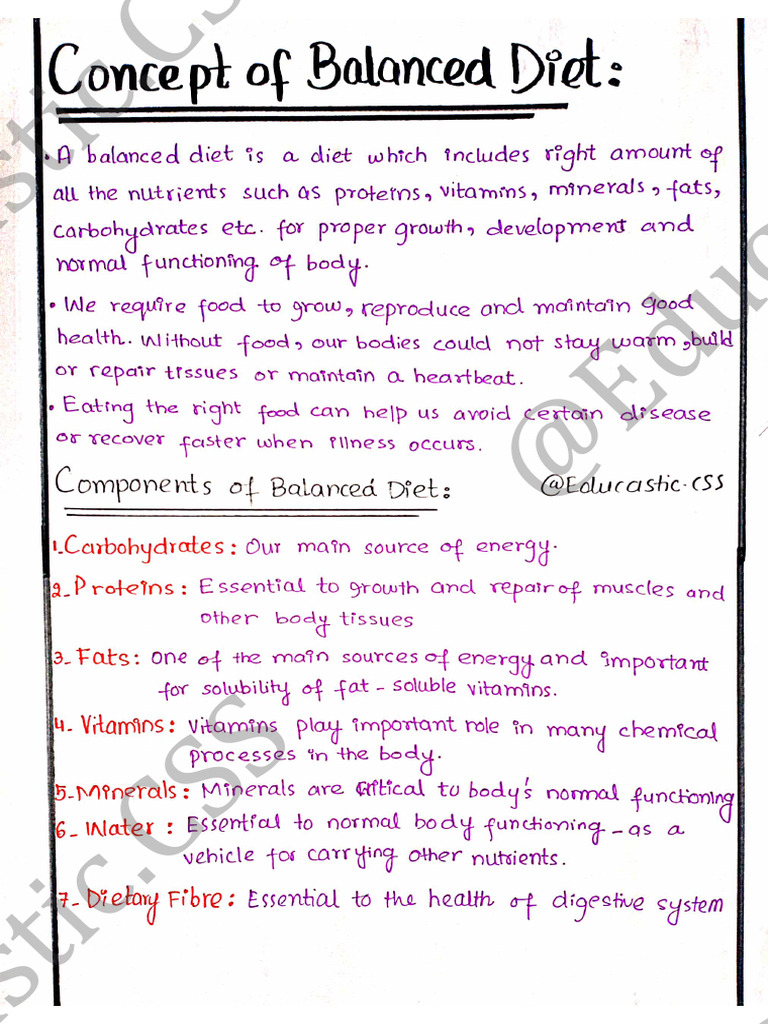 Concept of Balanced Diet:
• A balanced diet is a diet which includes right amount of
all the nutrients such as proteins, vitamins, minerals, fats,
carbohydrates etc. for proper growth, development and
normal functioning of body.
• We require food to grow, reproduce and maintain good
health. Without food, our bodies could not stay warm, build
or repair tissues or maintain a heartbeat.
• Eating the right food can help us avoid certain disease
or recover faster when illness occurs.
Components of Balanced Diet: @Educastic.CSS
1. Carbohydrates: Our main source of energy.
2- Proteins: Essential to growth and repair of muscles and
other body tissues
3- Fats: One of the main sources of energy and important
for solubility of fat-soluble vitamins.
4- Vitamins: Vitamins play important role in many chemical
processes in the body.
5- Minerals: Minerals are critical to body's normal functioning
6- Water: Essential to normal body functioning - as a
vehicle for carrying other nutrients.
7- Dietary Fibre: Essential to the health of digestive system
@Educ
stic.CSS